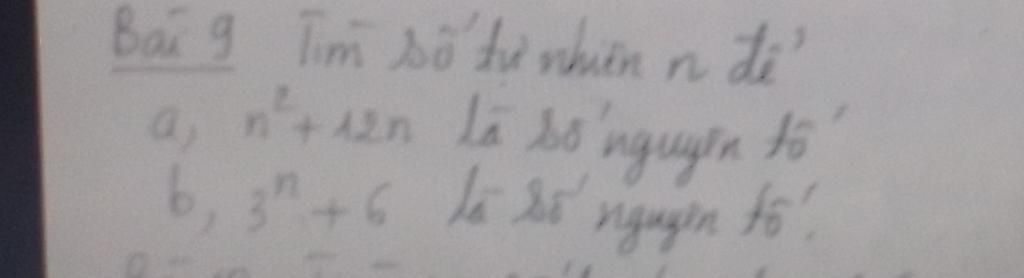 Bài 9 Tìm số tự nhiên n để
a, n² + 12n là số nguyên tố
b, 3ⁿ + 6 là số nguyên tố.